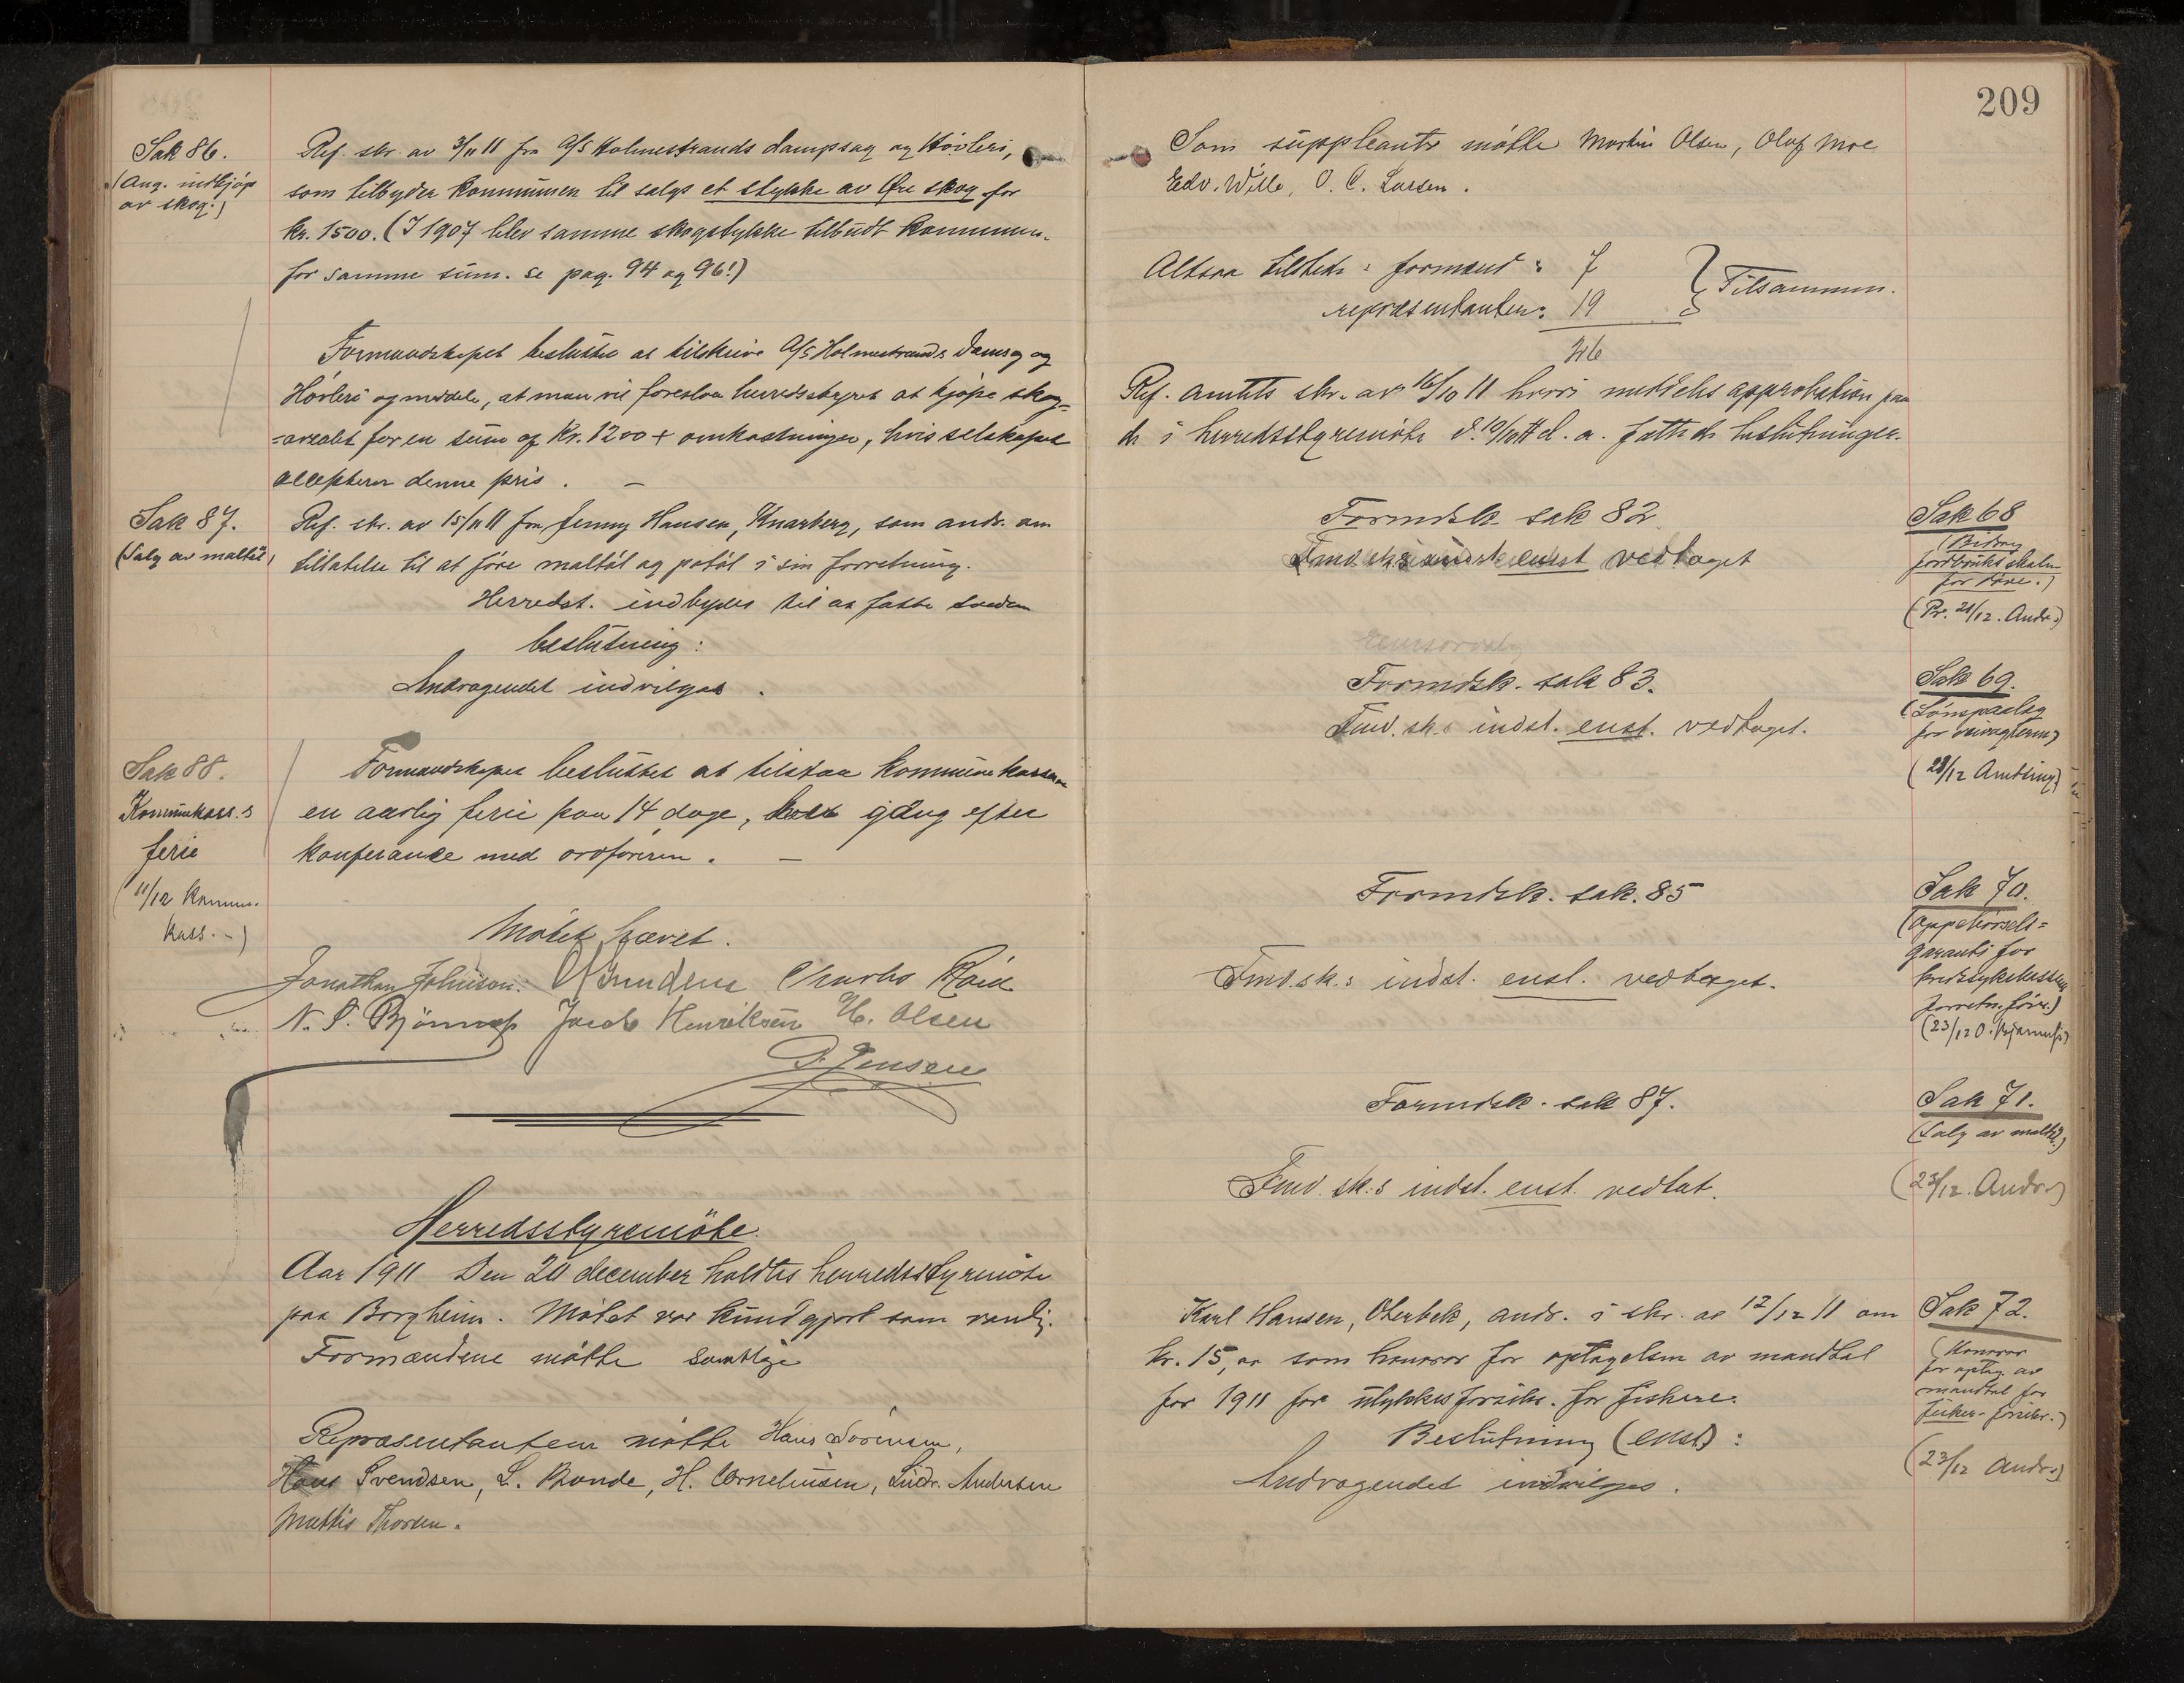 Sak 86.
(Ang. indkjøp
av skog.)
Ref. skr. av 3/11 11 fra A/S Holmestrands Dampsag og Høvleri,
som tilbyder kommunen til salgs et stykke av Øre skog for
kr. 1500. (I 1907 blev samme skogstykke tilbudt kommunen
for samme sum. se pag. 94 og 96!)
Formandskapet beslutter at tilskrive A/S Holmestrands Damsag og
Høvleri og meddele, at man vil foreslaa herredsstyret at kjøpe skog-
-arealet for en sum af Kr. 1200 + omkostninger, hvis selskapet
accepterer denne pris. —
Sak 87.
(Salg av maltøl)
Ref. skr. av 15/11 11 fra Jenny Hansen, Knarberg, som andr. om
tillatelse til at føre maltøl og potøl i sin forretning.
Herredst. indbydes til at fatte saadan
beslutning:
Andragendet indvilges.
Sak 88.
Kommunkass.s
ferie
(11/12 Kommu.
kass. -)
Formandskapet besluttet at tilstaa kommunekasseren
en aarlig ferie paa 14 dage, gang efter
konferance med ordføreren. —
Møtet hævet.
Jonathan Johnson. Charles Roed
N. P. Bjørnnes Jacob Henriksen H. Olsen
P. Jensen
Herredsstyremöte
Aar 1911 Den 20 december holdtes herredsstyremöte
paa Borgheim. Møtet var kundgjort som vanlig.
Formændene møtte samtlige
Repræsentanterne møtte Hans Sørensen,
Hans Svendsen, L. Bonde, H. Corneliussen, Ludv. Andersen
Mathis Thorsen.
209
Som suppleanter møtte Martin Olsen, Olaf Moe
Edv. Wille, O. C. Larsen.
Altsaa tilstede: formænd: 7
repræsentanter: 19
} Tilsammen.
26
Ref. amtets skr. av 16/10 11 hvori meddeles approbation paa
de i herredsstyremøte d. 10/10 d. a. fattede beslutninger.
Formdsk. sak 82
Fmd.sk.s indst. enst. vedtaget
Sak 68
(Bidrag
for Øre.)
(Pr. 21/12. Andr.)
Formdsk. sak 83.
Fmd.sk.s indst. enst. vedtaget.
Sak 69.
(Lønspaalæg
for veivogterne)
(23/12 Amtsing)
Formdsk. sak. 85
Fmd.sk.s indst. enst. vedtaget.
Sak 70.
(oppebørsels-
garanti for
kredssykekassens
forretn.fører)
(23/12 O. Bjørnnes)
Formdsk. sak 87.
Fmd. sk.s indst. enst. vedtat.
Sak 71.
(Salg av maltøl)
(23/12. Andr.)
Karl Hansen, Oterbek, andr. i skr. av 12/12 11 om
kr. 15,00 som honorar for optagelsen av mandtal
for 1911 for ulykkesforsikr. for fiskere.
Beslutning (enst):
Andragendet indvilges.
Sak 72.
(Honorar
for optag. av
mandtal for
fisker-forsikr.)
(23/12 Andr.)